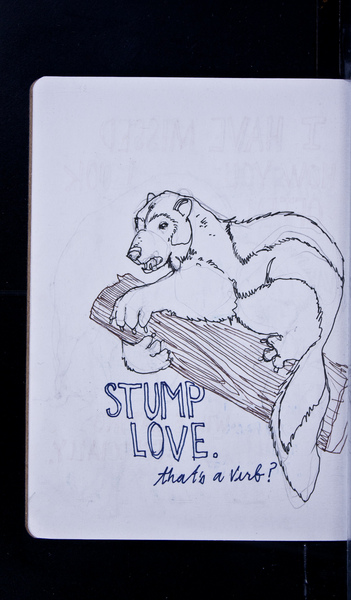 STUMP
LOVE.
that's a verb?